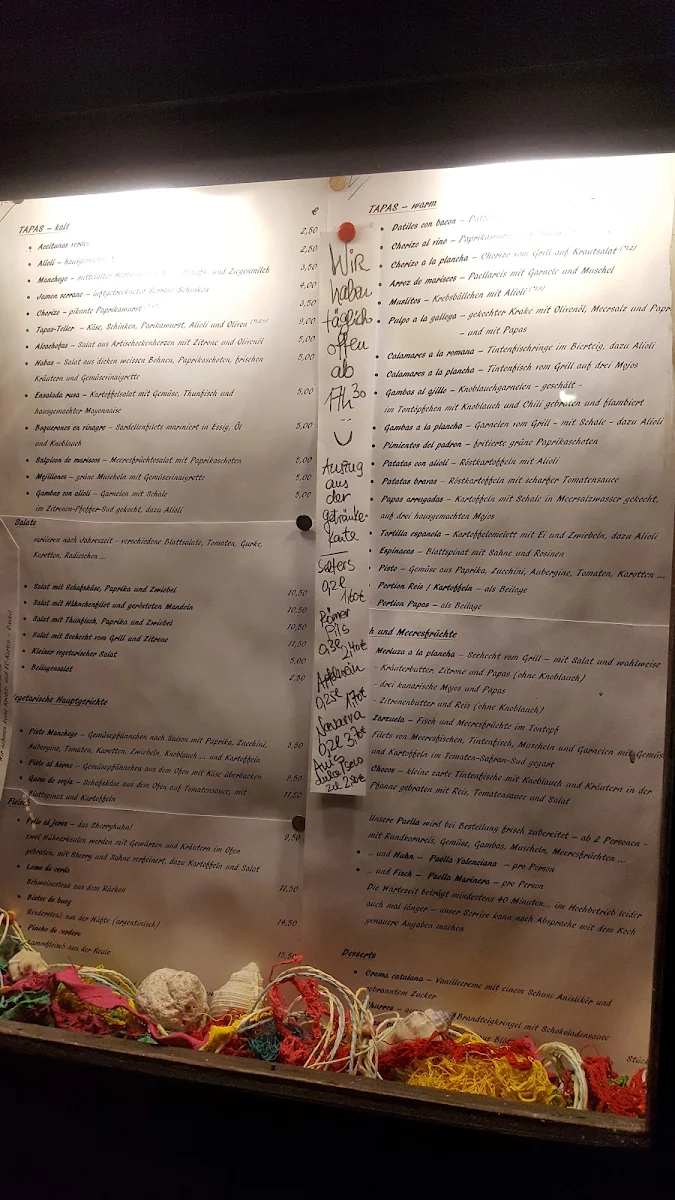 TAPAS – kalt
€
Aceitunas verdes 2,50
Alioli – hausgemacht 2,50
Manchego – mittelalter und Ziegenmilch 3,50
Jamon serrano – luftgetrockneter Serrano-Schinken 4,00
Chorizo – pikante Paprikawurst 3,50
Tapas-Teller – Käse, Schinken, Parikawurst, Alioli und Oliven 9,00
Alcachofas – Salat aus Artischockenherzen mit Zitrone und Olivenöl 5,00
Habas – Salat aus dicken weissen Bohnen, Paprikaschoten, frischen 5,00
Kräutern und Gemüsevinaigrette
Ensalada rusa – Kartoffelsalat mit Gemüse, Thunfisch und 5,00
hausgemachter Mayonnaise
Boquerones en vinagre – Sardellenfilets mariniert in Essig, Öl 5,00
und Knoblauch
Salpicon de mariscos – Meeresfrüchtesalat mit Paprikaschoten 5,00
Mejillones – grüne Muscheln mit Gemüsevinaigrette 5,00
Gambas con alioli – Garnelen mit Schale 5,00
im Zitronen-Pfeffer-Sud gekocht, dazu Alioli
Salate
variieren nach Jahreszeit – verschiedene Blattsalate, Tomaten, Gurke,
Karotten, Radieschen ...
Salat mit Schafskäse, Paprika und Zwiebel 10,50
Salat mit Hähnchenfilet und gerösteten Mandeln 10,50
Salat mit Thunfisch, Paprika und Zwiebel 10,50
Salat mit Seehecht vom Grill und Zitrone 11,50
Kleiner vegetarischer Salat 5,00
Beilagensalat 2,50
Vegetarische Hauptgerichte
Pisto Manchego – Gemüsepfännchen nach Saison mit Paprika, Zucchini,
Aubergine, Tomaten, Karotten, Zwiebeln, Knoblauch ... und Kartoffeln 8,50
Pisto al horno – Gemüsepfännchen aus dem Ofen mit Käse überbacken 9,50
Queso de oveja – Schafskäse aus dem Ofen auf Tomatensauce, mit
Blattspinat und Kartoffeln 11,50
Fleisch
Pollo al jerez – das Sherryhuhn! 9,50
zwei Hühnerkeulen werden mit Gewürzen und Kräutern im Ofen
gebraten, mit Sherry und Sahne verfeinert, dazu Kartoffeln und Salat
Lomo de cerdo 11,50
Schweinesteak aus dem Rücken
Bistec de buey
Rindersteak aus der Hüfte (argentinisch) 14,50
Pincho de cordero
Lammfleisch aus der Keule 15,50
Wir
haben
täglich
offen
ab
17h30
Auszug
aus
der
Getränke-
karte
Selters
0,2l
1,60€
Römer
Pils
0,3l 2,40€
Apfelwein
0,25l 1,70€
Navarra
0,2l 3,70€
TAPAS – warm
Datiles con bacon –
Chorizo al vino –
Chorizo a la plancha – Chorizo vom Grill auf Krautsalat
Arroz de mariscos – Paellareis mit Garnele und Muschel
Muslitos – Krebsbällchen mit Alioli
Pulpo a la gallega – gekochter Krake mit Olivenöl, Meersalz und Papr
– und mit Papas
Calamares a la romana – Tintenfischringe im Bierteig, dazu Alioli
Calamares a la plancha – Tintenfisch vom Grill auf drei Mojos
Gambas al ajillo – Knoblauchgarnelen – geschält –
im Tontöpfchen mit Knoblauch und Chili gebraten und flambiert
Gambas a la plancha – Garnelen vom Grill – mit Schale – dazu Alioli
Pimientos del padron – fritierte grüne Paprikaschoten
Patatas con alioli – Röstkartoffeln mit Alioli
Patatas bravas – Röstkartoffeln mit scharfer Tomatensauce
Papas arrugadas – Kartoffeln mit Schale in Meersalzwasser gekocht,
auf drei hausgemachten Mojos
Tortilla espanola – Kartoffelomelett mit Ei und Zwiebeln, dazu Alioli
Espinacas – Blattspinat mit Sahne und Rosinen
Pisto – Gemüse aus Paprika, Zucchini, Aubergine, Tomaten, Karotten ...
Portion Reis / Kartoffeln – als Beilage
Portion Papas – als Beilage
h und Meeresfrüchte
Merluza a la plancha – Seehecht vom Grill – mit Salat und wahlweise
– Kräuterbutter, Zitrone und Papas (ohne Knoblauch)
– drei kanarische Mojos und Papas
– Zitronenbutter und Reis (ohne Knoblauch)
Zarzuela – Fisch und Meeresfrüchte im Tontopf
Filets von Meeresfischen, Tintenfisch, Muscheln und Garnelen mit Gemüs
und Kartoffeln im Tomaten-Safran-Sud gegart
Chocos – kleine zarte Tintenfische mit Knoblauch und Kräutern in der
Pfanne gebraten mit Reis, Tomatensauce und Salat
Unsere Paella wird bei Bestellung frisch zubereitet – ab 2 Personen –
mit Rundkornreis, Gemüse, Gambas, Muscheln, Meeresfrüchten ...
.. und Huhn – Paella Valenciana – pro Person
.. und Fisch – Paella Marinera – pro Person
Die Wartezeit beträgt mindestens 40 Minuten... im Hochbetrieb leider
auch mal länger – unser Service kann nach Absprache mit dem Koch
genauere Angaben machen
Desserts
Crema catalana – Vanillecreme mit einem Schuss Anislikör und
gebranntem Zucker
Churros – Brandteigkringel mit Schokoladensauce
Stück